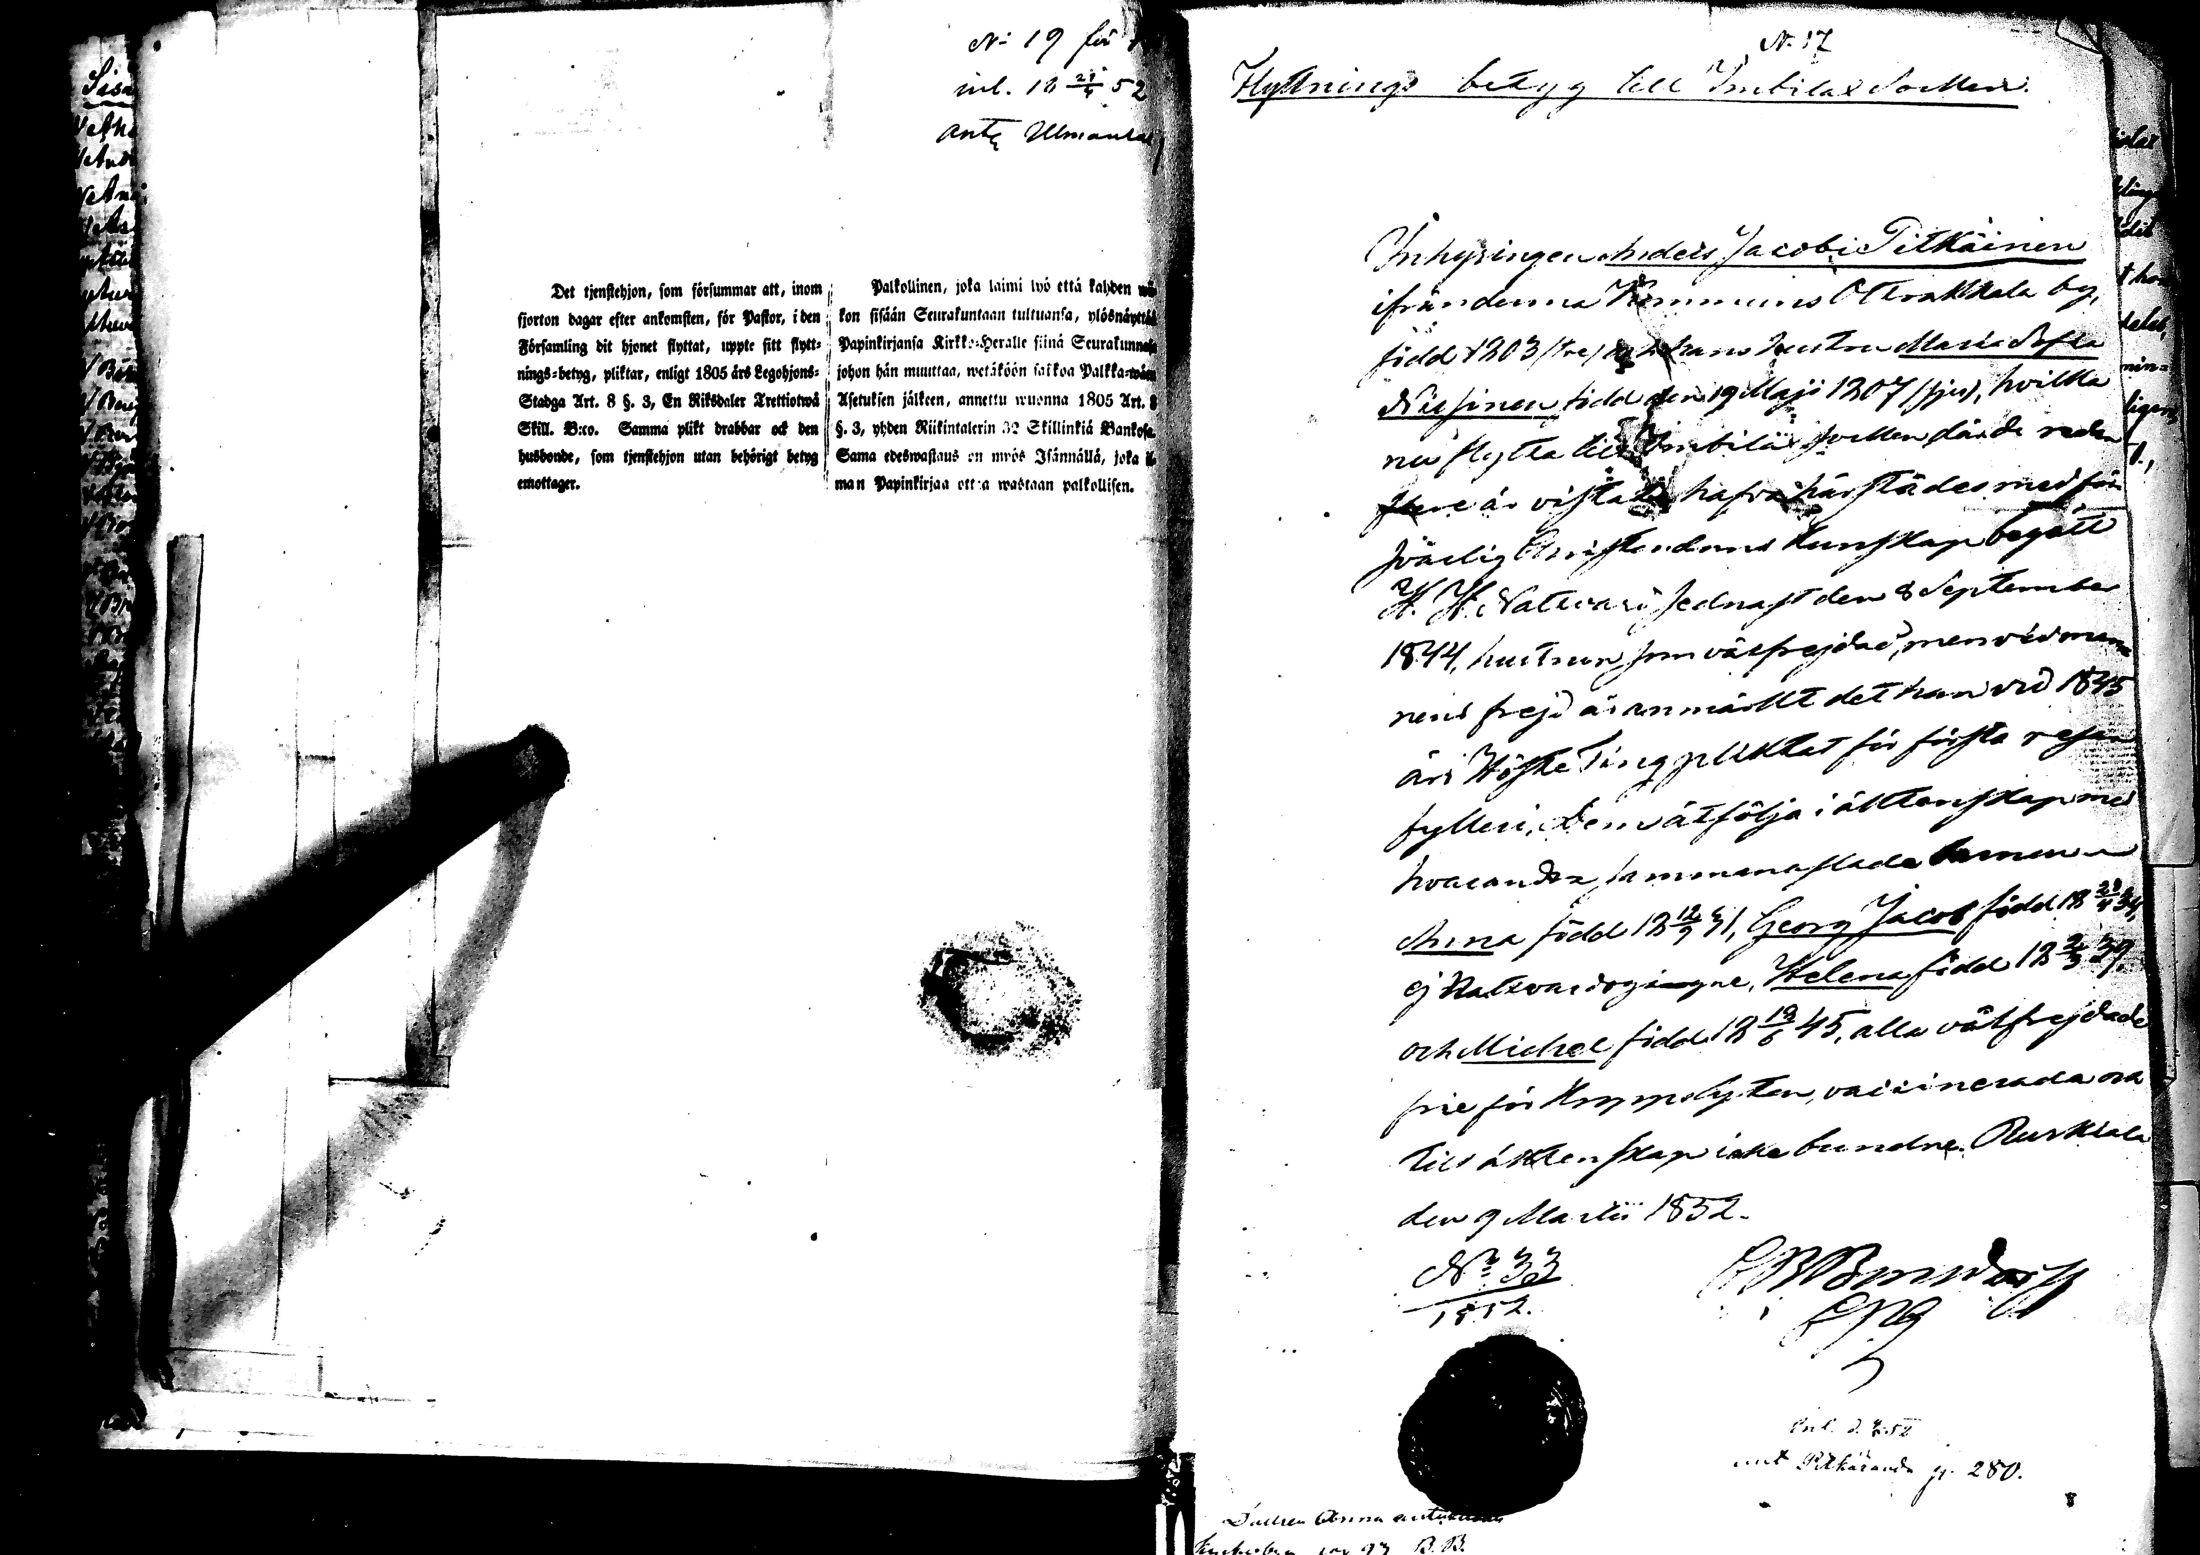 No 19 för
inl. 18 21/4 52
ant. Ulmanlax
Det tjenstehjon, som försummar att, inom
fjorton dagar efter ankomsten, för Pastor, i den
Församling dit hjonet flyttat, uppte sitt flytt-
nings-betyg, pliktar, enligt 1805 års Legohjons-
Stadga Art. 8 §. 3, En Riksdaler Trettiotwå
Skill. B:co. Samma plikt drabbar ock den
husbonde, som tjenstehjon utan behörigt betyg
emottager.
Palkollinen, joka laimi lyö että kahden wii-
kon sisään Seurakuntaan tultuansa, ylösnäyttää
Papinkirjansa Kirkko-Heralle siinä Seurakunnasa
johon hän muuttaa, wetäköön sakkoa Palkka-wäen
Asetuksen jälkeen, annettu wuonna 1805 Art. 8
§. 3, yhden Riikintalerin 32 Skillinkiä Bankosa.
Sama edeswastaus on myös Isännällä, joka il-
man Papinkirjaa ottaa wastaan palkollisen.
N. 17
Flyttnings betyg till Imbilax Socken.
Inhysingen Anders Jacobi Pitkäinen
ifrån denna Kommuns Otrakkala by,
född 1803 (tre) och hans hustru Maria Sofia
Nissinen född den 19 Maji 1807 (sju), hvilka
nu flytta till Imbilax Socken där de redan
flere år vistats hafva härstädes med för-
svarlig Christendoms kunskap begått
H. H. Nattvard sednast den 8 September
1844, hustrun som välfrejdad, men vid man-
nens frejd är anmärkt det han vid 1845
års Höste Ting pliktat för första resan
fylleri. Dem åtfölja i äktenskap med
hvarandra sammanaflade barnen
Anna född 18 12/9 31, Georg Jacob född 18 23/4 34,
ej Nattvardsgångne, Helena född 18 2/3 39,
och Michel född 18 12/6 45, alla välfrejdade
frie för Koppslysten, vaccinerada och
till äktenskap icke bundne. Ruskiala
den 9 Martii 1852.
No 33
1852.
Inl. d.
ant Pitkäranda p. 280.
Dottren Anna
B.B.